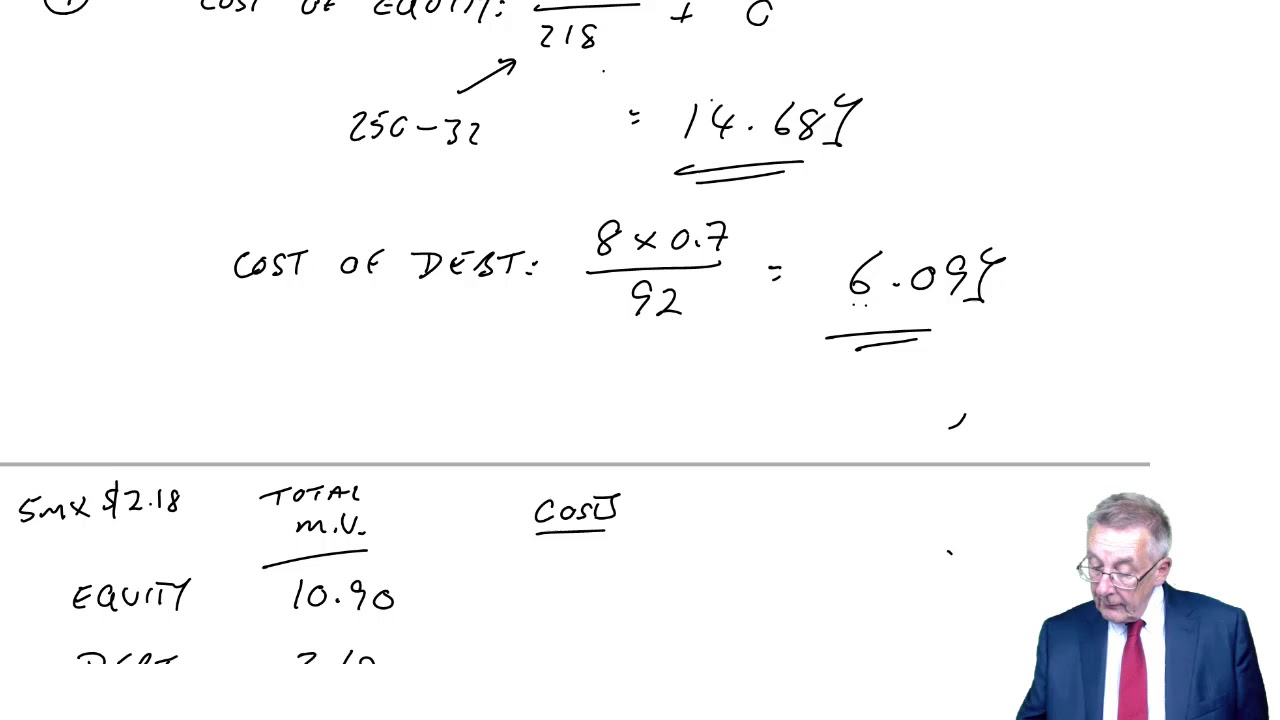 COST OF EQUITY: / 218 + 0
250 - 32
= 14.68%
COST OF DEBT: 8 x 0.7 / 92 = 6.09%
5m x $2.18 TOTAL M.V. COSTS
EQUITY 10.90
DEBT